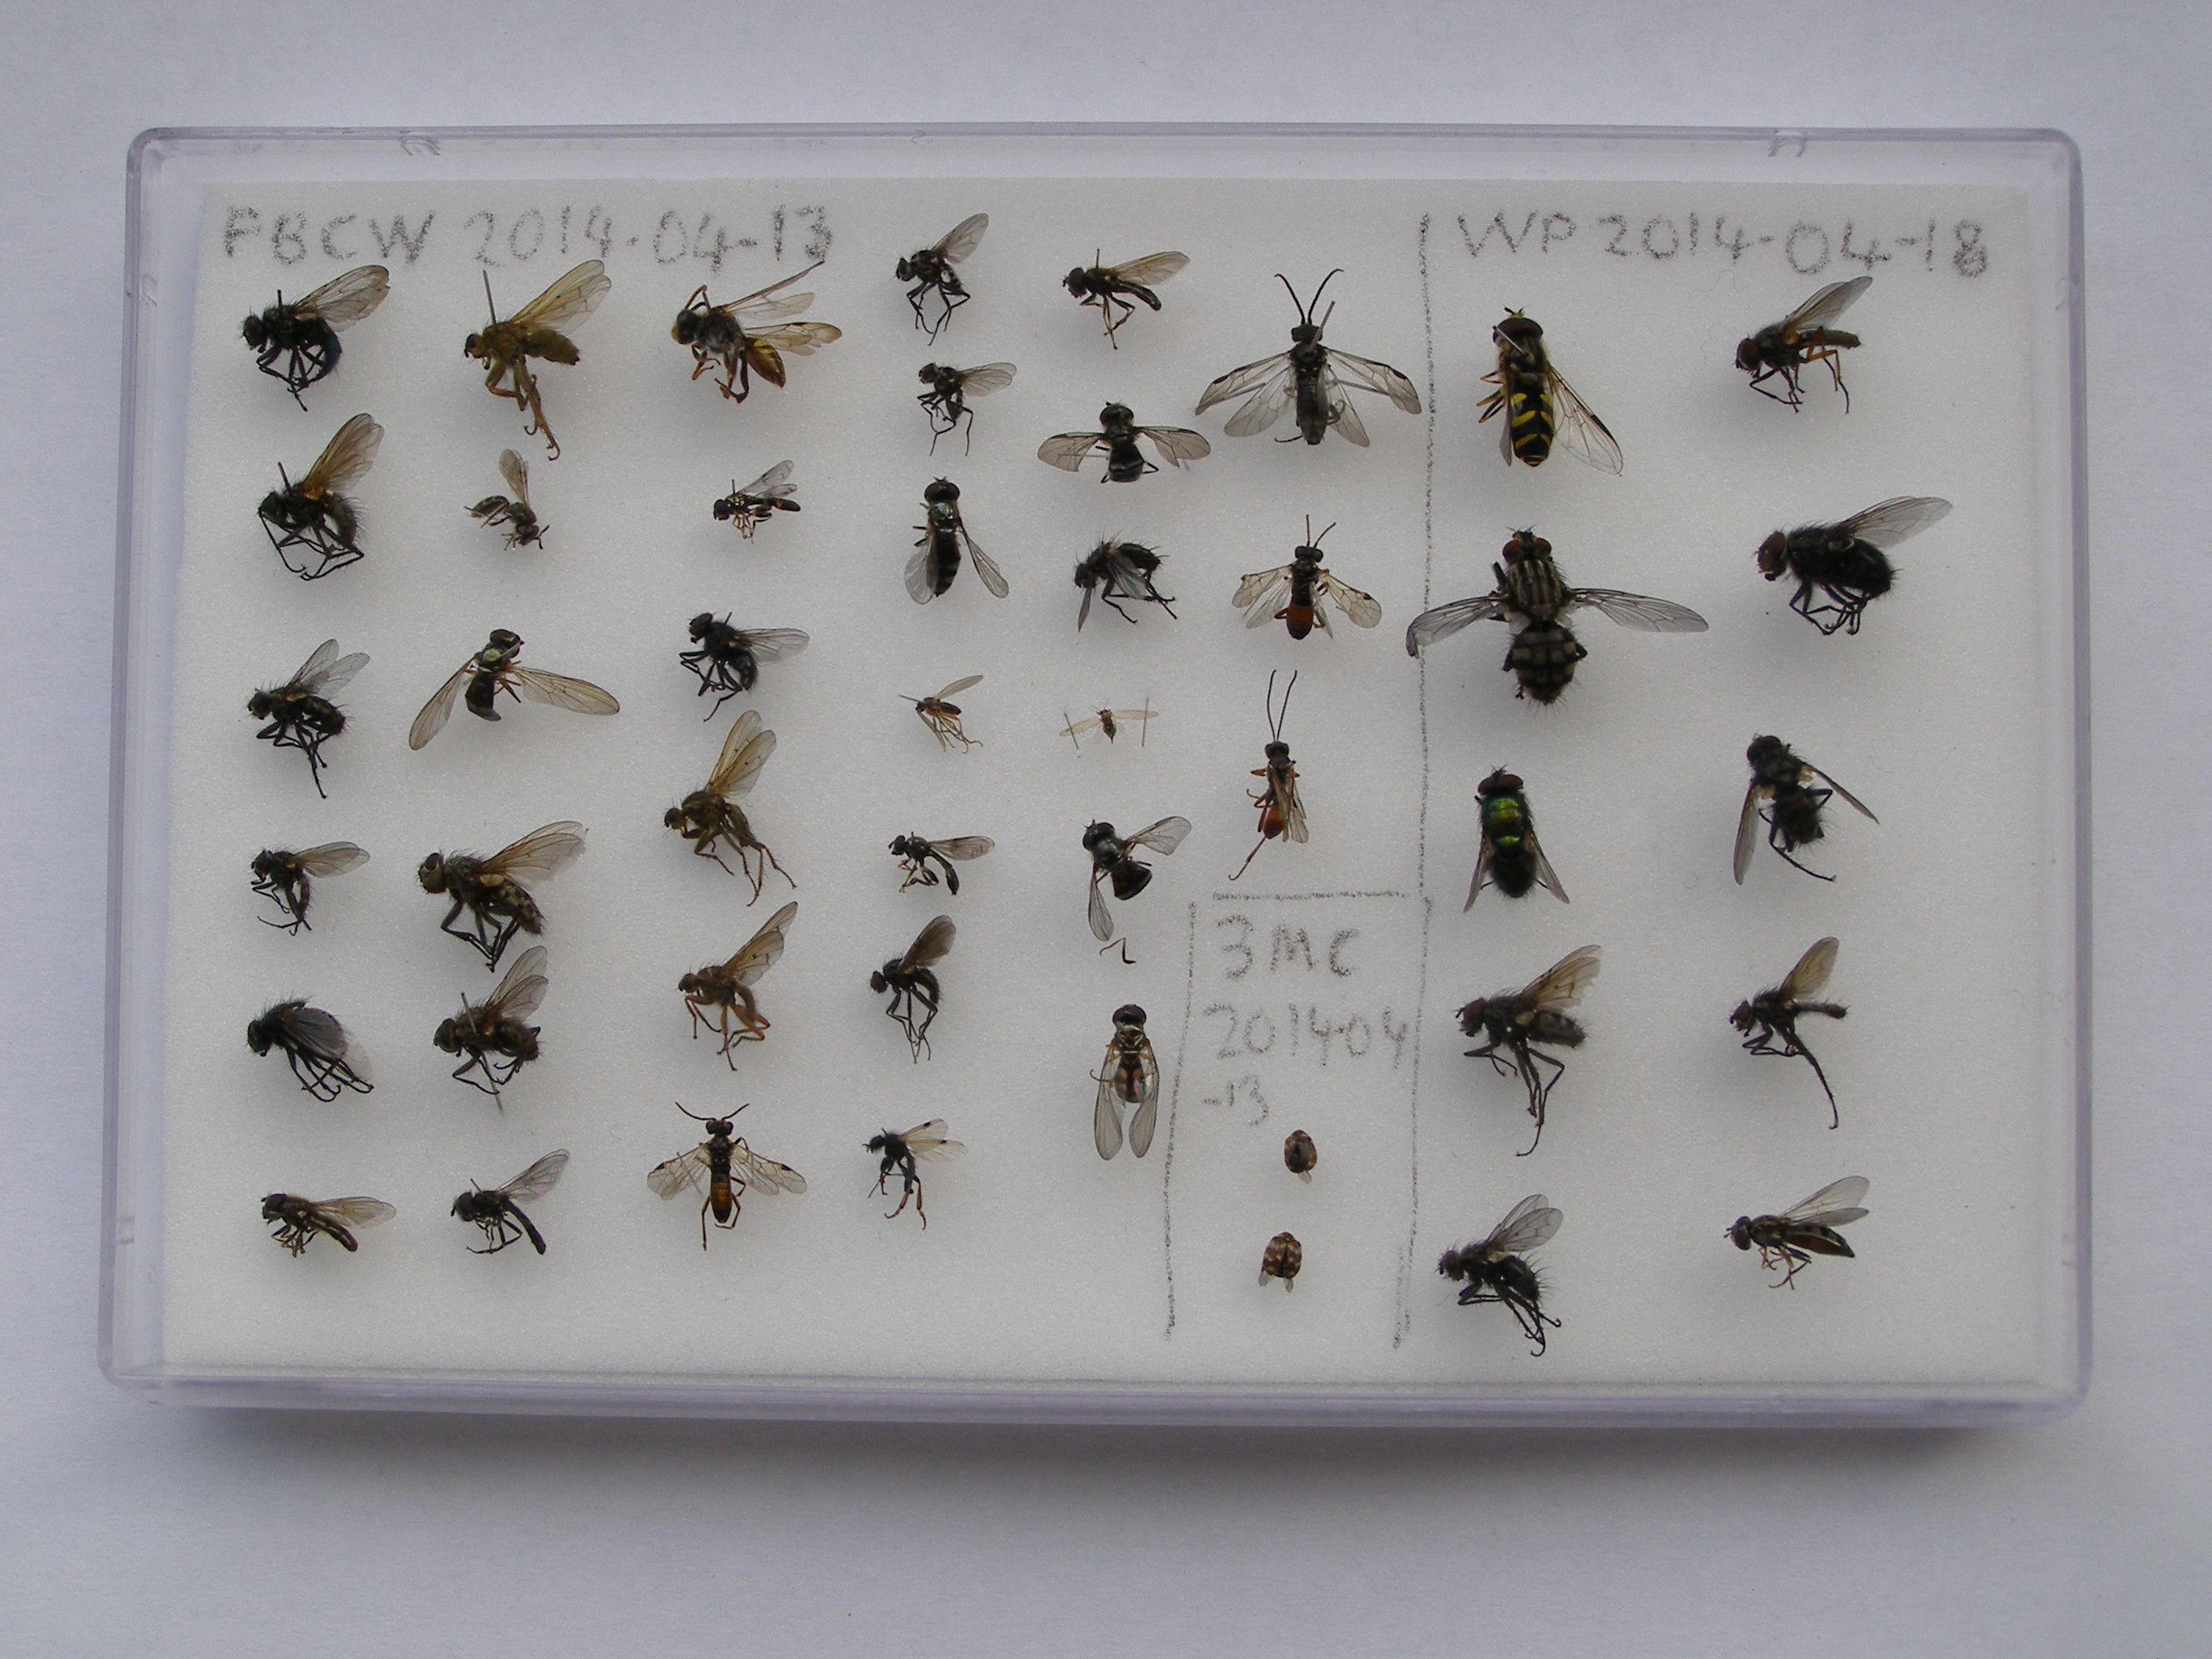 FBCW 2014-04-13
WP 2014-04-18
3MC
2014-04
-13